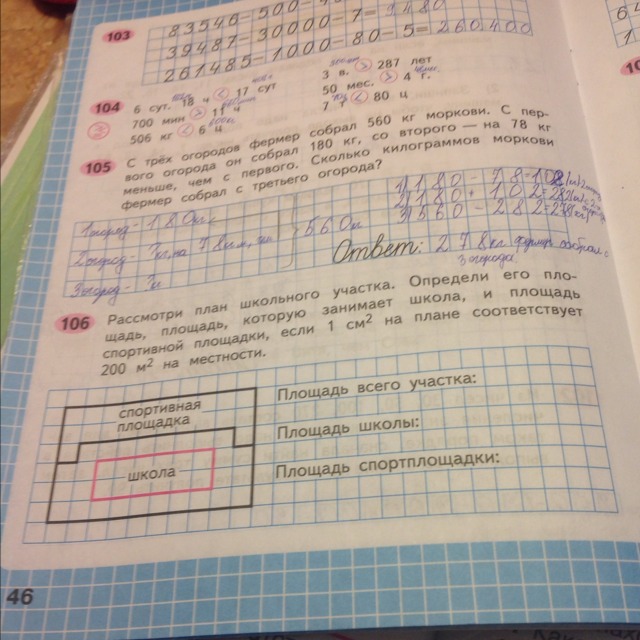 103
83546-500-
39487-30000-7=9480
261485-1000-80-5=260400
104
6 сут. 18 ч < 17 сут
3 в. > 287 лет
700 мин > 11 ч
50 мес. > 4 г.
506 кг < 6 ц
7 т < 80 ц
105
С трёх огородов фермер собрал 560 кг моркови. С пер-
вого огорода он собрал 180 кг, со второго — на 78 кг
меньше, чем с первого. Сколько килограммов моркови
фермер собрал с третьего огорода?
1 огород - 180 кг
2 огород - ?кг, на 78 кг м,
3 огород - ?кг
560 кг
1) 180 - 78=102
2) 180 + 102=282
3) 560 - 282=278
Ответ: 278 кг фермер собрал с
3 огорода.
106
Рассмотри план школьного участка. Определи его пло-
щадь, площадь, которую занимает школа, и площадь
спортивной площадки, если 1 см² на плане соответствует
200 м² на местности.
спортивная
площадка
школа
Площадь всего участка:
Площадь школы:
Площадь спортплощадки:
46